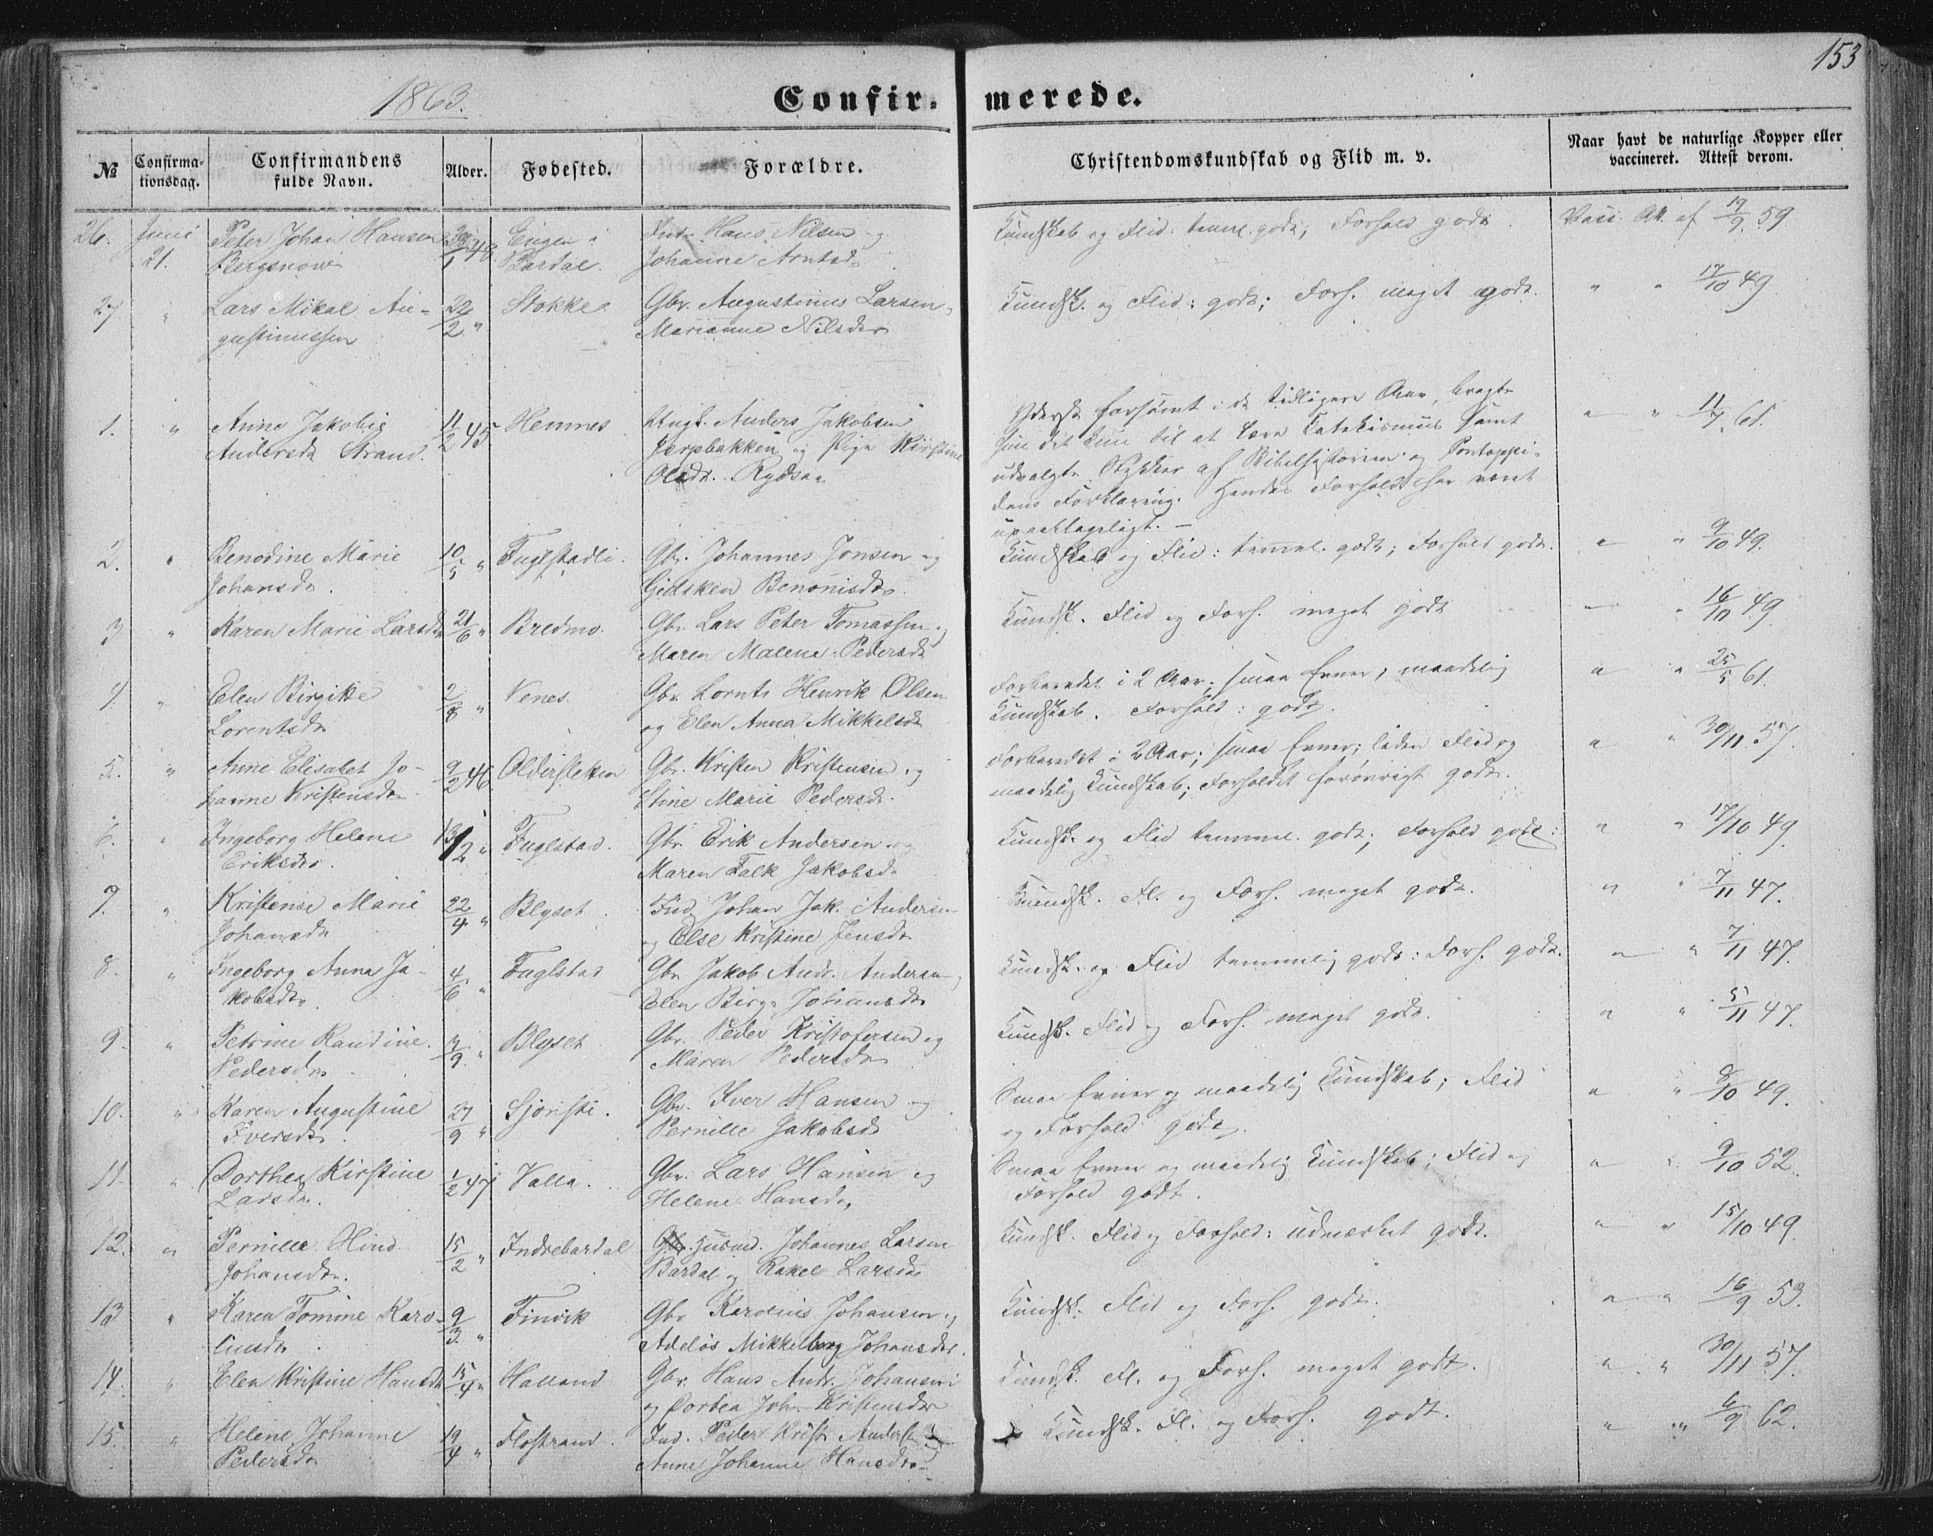 153
1863.
Confir- merede.
№ Confirmationsdag. Confirmandens fulde Navn. Alder. Fødested. Forældre. Christendomskundskab og Flid m. v. Naar havt de naturlige Kopper eller vaccineret. Attest derom.
26. Juni Peter Johan Hansen Engen i Ind. Hans Nilsen og Kundskab og Flid: temml. godt; Forhold godt. Vacc. Att. af 19/9 59.
21. Bardal. Johanne Arntsdr
27 " Lars Mikal Au- 22/2 " Stokke. Gbr. Augustinus Larsen, Kundsk. og Flid: godt; Forh. meget godt. " " 17/10 49
gustinussen Marianne Nilsdr
1. " Anne Jakobie 11/2 45 Hemnes Ungk. Anders Jakobsen Yderst forsømt i de tidligere Aar, bragte " " 61.
Andersdr Strand. og Pige Kirstine hun det kun til at lære Katekismus samt
Olsdr. udvalgte Stykker af Bibelhistorien og Pontoppi-
dans Forklaring. Hendes Forhold har været
upaaklageligt. —
2. " Benodine Marie 10/5 " Fuglstadli. Gbr. Johannes Jonsen og Kundskab og Flid: temml. godt; Forhold godt. " " 9/10 49.
Johansdr. Gidsken Benonisdr.
3. " Karen Marie Larsdr 21/6 " Bredmo. Gbr. Lars Peter Tomassen, Kundsk. Flid og Forh. meget godt " " 16/10 49.
Maren Malene Pedersdr
4. " Elen Birgitte 2/8 " Nenes. Gbr. Lornts Henrik Olsen Forberedt i 2 Aar; smaa Evner, maadelig " " 25/5 61.
Lorentsdr og Elen Anna Mikkelsdr Kundskab. Forhold: godt.
5. " Anne Elisabet Jo- 9/2 46. Oldersletten Gbr. Kristen Kristensen og Forberedt i 2 Aar; smaa Evner; liden Flid og " " 30/11 57.
hanne Kristensdr Stine Marie Pedersdr. maadelig Kundskab; Forholdet forøvrigt godt.
6. " Ingeborg Helene " Fuglstad. Gbr. Erik Andersen og Kundsk. og Flid temml. godt; Forhold godt. " " 17/10 49.
Eriksdr. Maren Falk Jakobsdr
7. " Kristense Marie 22/4 " Blyset. Ind. Johan Jak. Andersen Kundsk. Fl. og Forh. meget godt. " " 7/11 47.
Johansdr og Else Kristine Jensdr
8. " Ingeborg Anna Ja- 4/6 " Fuglstad Gbr. Jakob Andr. Andersen, Kundsk. og Flid temmelig godt: Forh. godt. " " 7/11 47.
kobsdr. Elen Birg. Johansdr
9. " Petrine Randine /9 " Blyset Gbr. Peder Kristofersen og Kundsk. Flid og Forh. meget godt. " " 5/11 47.
Pedersdr. Maren Pedersdr
10. " Karen Augustine 27/9 " Sjøristi. Gbr. Iver Hansen og Smaa Evner og maadelig Kundskab; Flid " " 8/10 49.
Iversdr. Pernille Jakobsdr og Forhold godt.
11. " Dorthea Kirstine 1/2 47 Valla. Gbr. Lars Hansen og Smaa Evner og maadelig Kundskab; Flid og " " 9/10 52.
Larsdr. Helene Hansdr. Forhold godt.
12. " Pernille Hind 15/2 " Indrebardal Husmd. Johannes Larsen Kundsk. Flid og Forhold: udmærket godt. " " 15/10 49.
Johansdr. Bardal og Rakel Larsdr
13 " Karen Tomine Karo- 9/3 " Finvik Gbr. Karolius Johansen, Kundsk. Flid og Forh. godt. " " 16/9 53.
liusdr Adeløs Mikkelborg Johansdr.
14. " Elen Kristine Hansdr 15/4 " Halland Gbr. Hans Andr. Johansen Kundsk. Fl. og Forh. meget godt. " " 30/11 57.
og Dortea Joh. Kristensdr
15. " Helene Johanne 19/4 " Flostrand. Ind. Peder Krist. Anders Kundsk. Fl. og Forh. godt. " " 6/9 62.
Pedersdr Anne Johanne Hansdr.